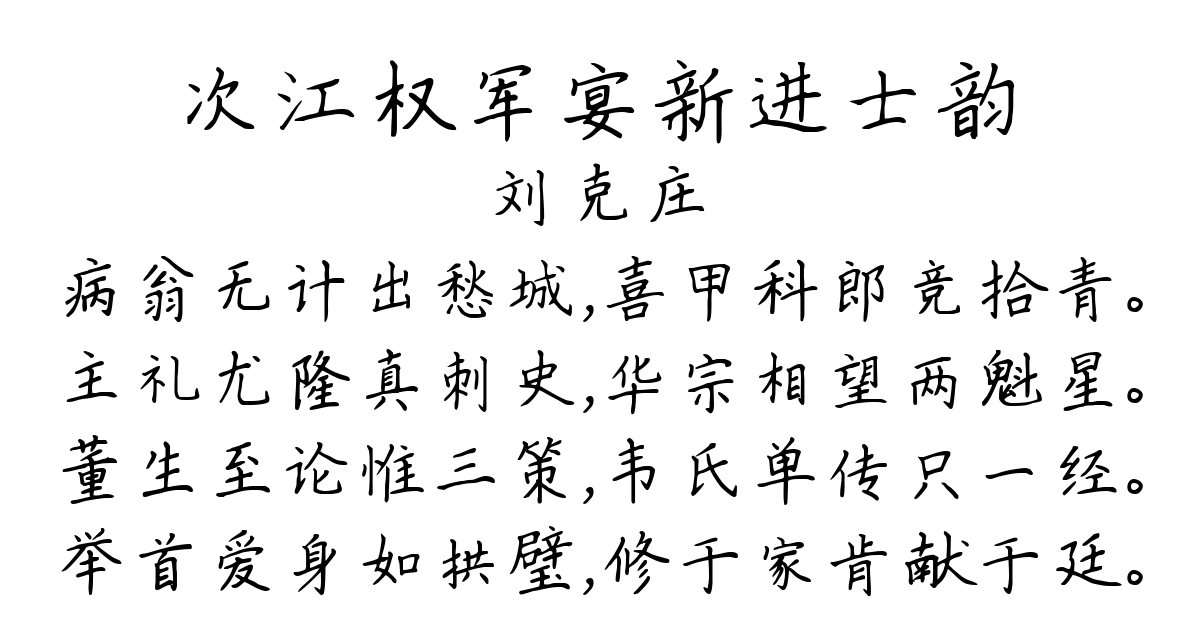 次江权军宴新进士韵
刘克庄
病翁无计出愁城,喜甲科郎竞拾青。
主礼尤隆真刺史,华宗相望两魁星。
董生至论惟三策,韦氏单传只一经。
举首爱身如拱璧,修于家肯献于廷。